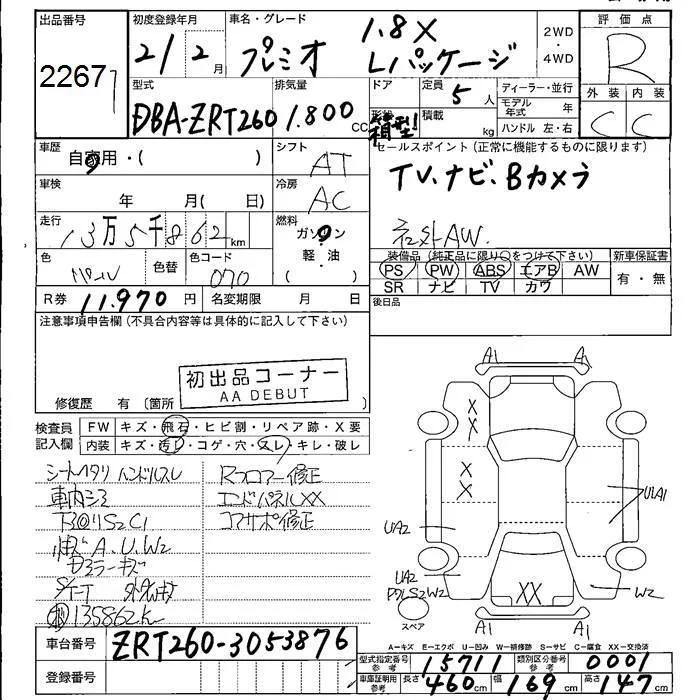 出品番号
22671
初度登録年月
21 2月
車名・グレード
プレミオ
1.8X
Lパッケージ
2WD
・
4WD
評価点
R
外装 内装
C C
型式
DBA-ZRT260
排気量
1.800 CC
ドア
形状
箱型
定員
5人
積載
kg
ディーラー・並行
モデル年式 年
ハンドル 左・右
車歴
自家用・( )
シフト
AT
セールスポイント (正常に機能するものに限ります)
TV.ナビ.Bカメラ
社外AW.
車検
年 月( 日)
冷房
AC
走行
13万5千862km
燃料
ガソリン
軽・油
色
パール
色替
色コード
070
装備品 (純正品に限り○をつけて下さい)
PS PW ABS エアB AW
SR ナビ TV カワ
新車保証書
有・無
R券 11,970円 名変期限 月 日
後日品
注意事項申告欄 (不具合内容等は具体的に記入して下さい)
初出品コーナー
AA DEBUT
修復歴 有 〔箇所
検査員
記入欄
FW キズ・飛石・ヒビ割・リペア跡・X要
内装 キズ・汚れ・コゲ・穴・スレ・キレ・破レ
シートヘタリ ハンドルスレ
車内シミ
S2C1
A.U.W2
ドアミラーキズ
135862K
Rフロアー修正
エンドパネルXX
コアサポ修正
A1 A1
X
X
X
X
UA2
U1A1
UA2
XX
W2
A1 A1
スペア
A=キズ E=エクボ U=凹み W=補修跡 S=サビ C=腐食 XX=交換済
車台番号 ZRT260-3053876
登録番号
型式指定番号 参考 15711 類別区分番号 参考 0001
車庫証明用 参考 長さ 460cm 幅 169cm 高さ 147cm